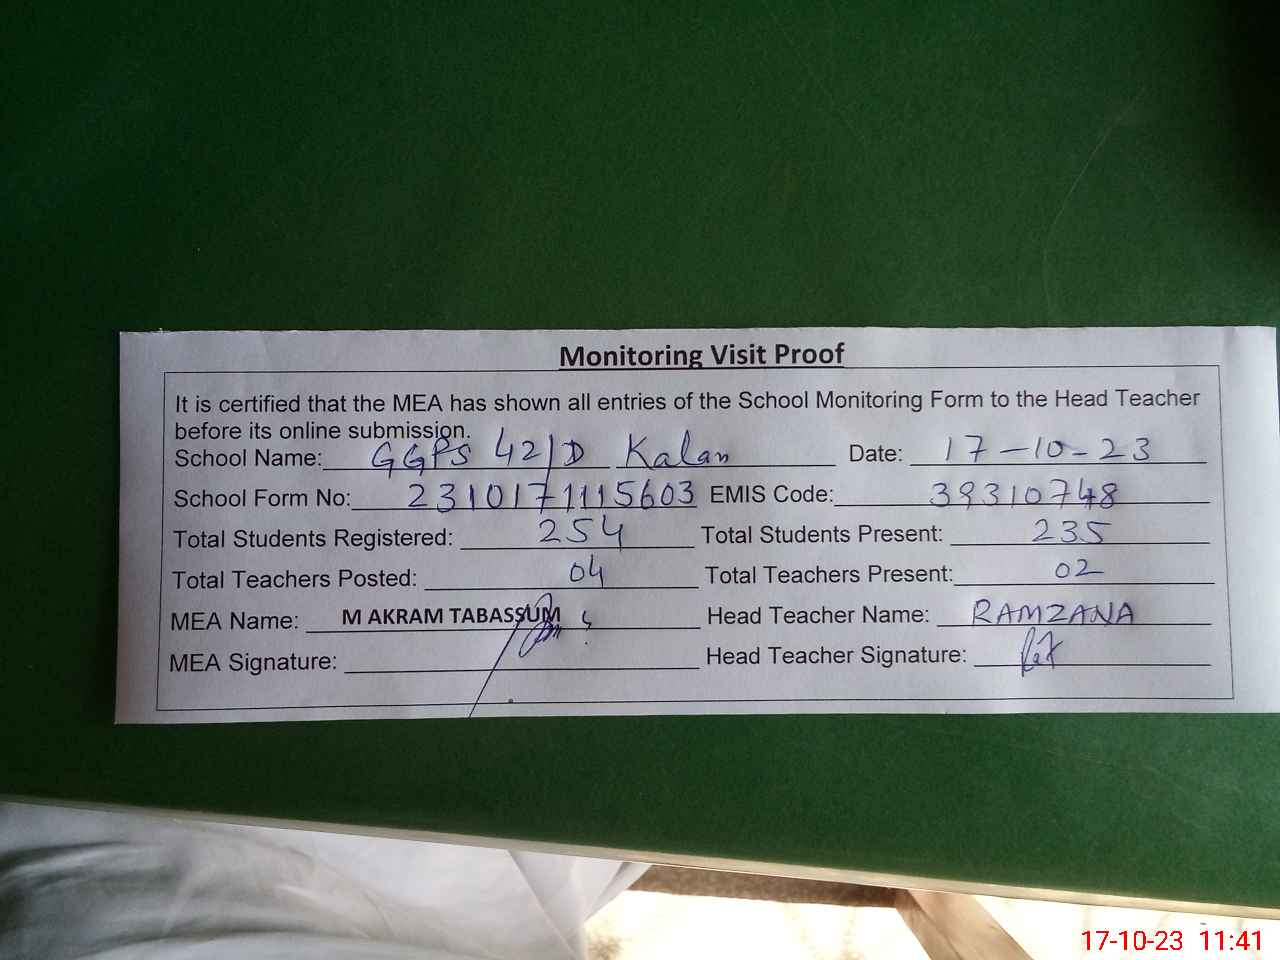 Monitoring Visit Proof
It is certified that the MEA has shown all entries of the School Monitoring Form to the Head Teacher
before its online submission.
School Name: GGPS 42/D Kalan Date: 17-10-23
School Form No: 2310171115603 EMIS Code: 39310748
Total Students Registered: 254 Total Students Present: 235
Total Teachers Posted: 04 Total Teachers Present: 02
MEA Name: M AKRAM TABASSUM Head Teacher Name: RAMZANA
MEA Signature: Head Teacher Signature:
17-10-23 11:41